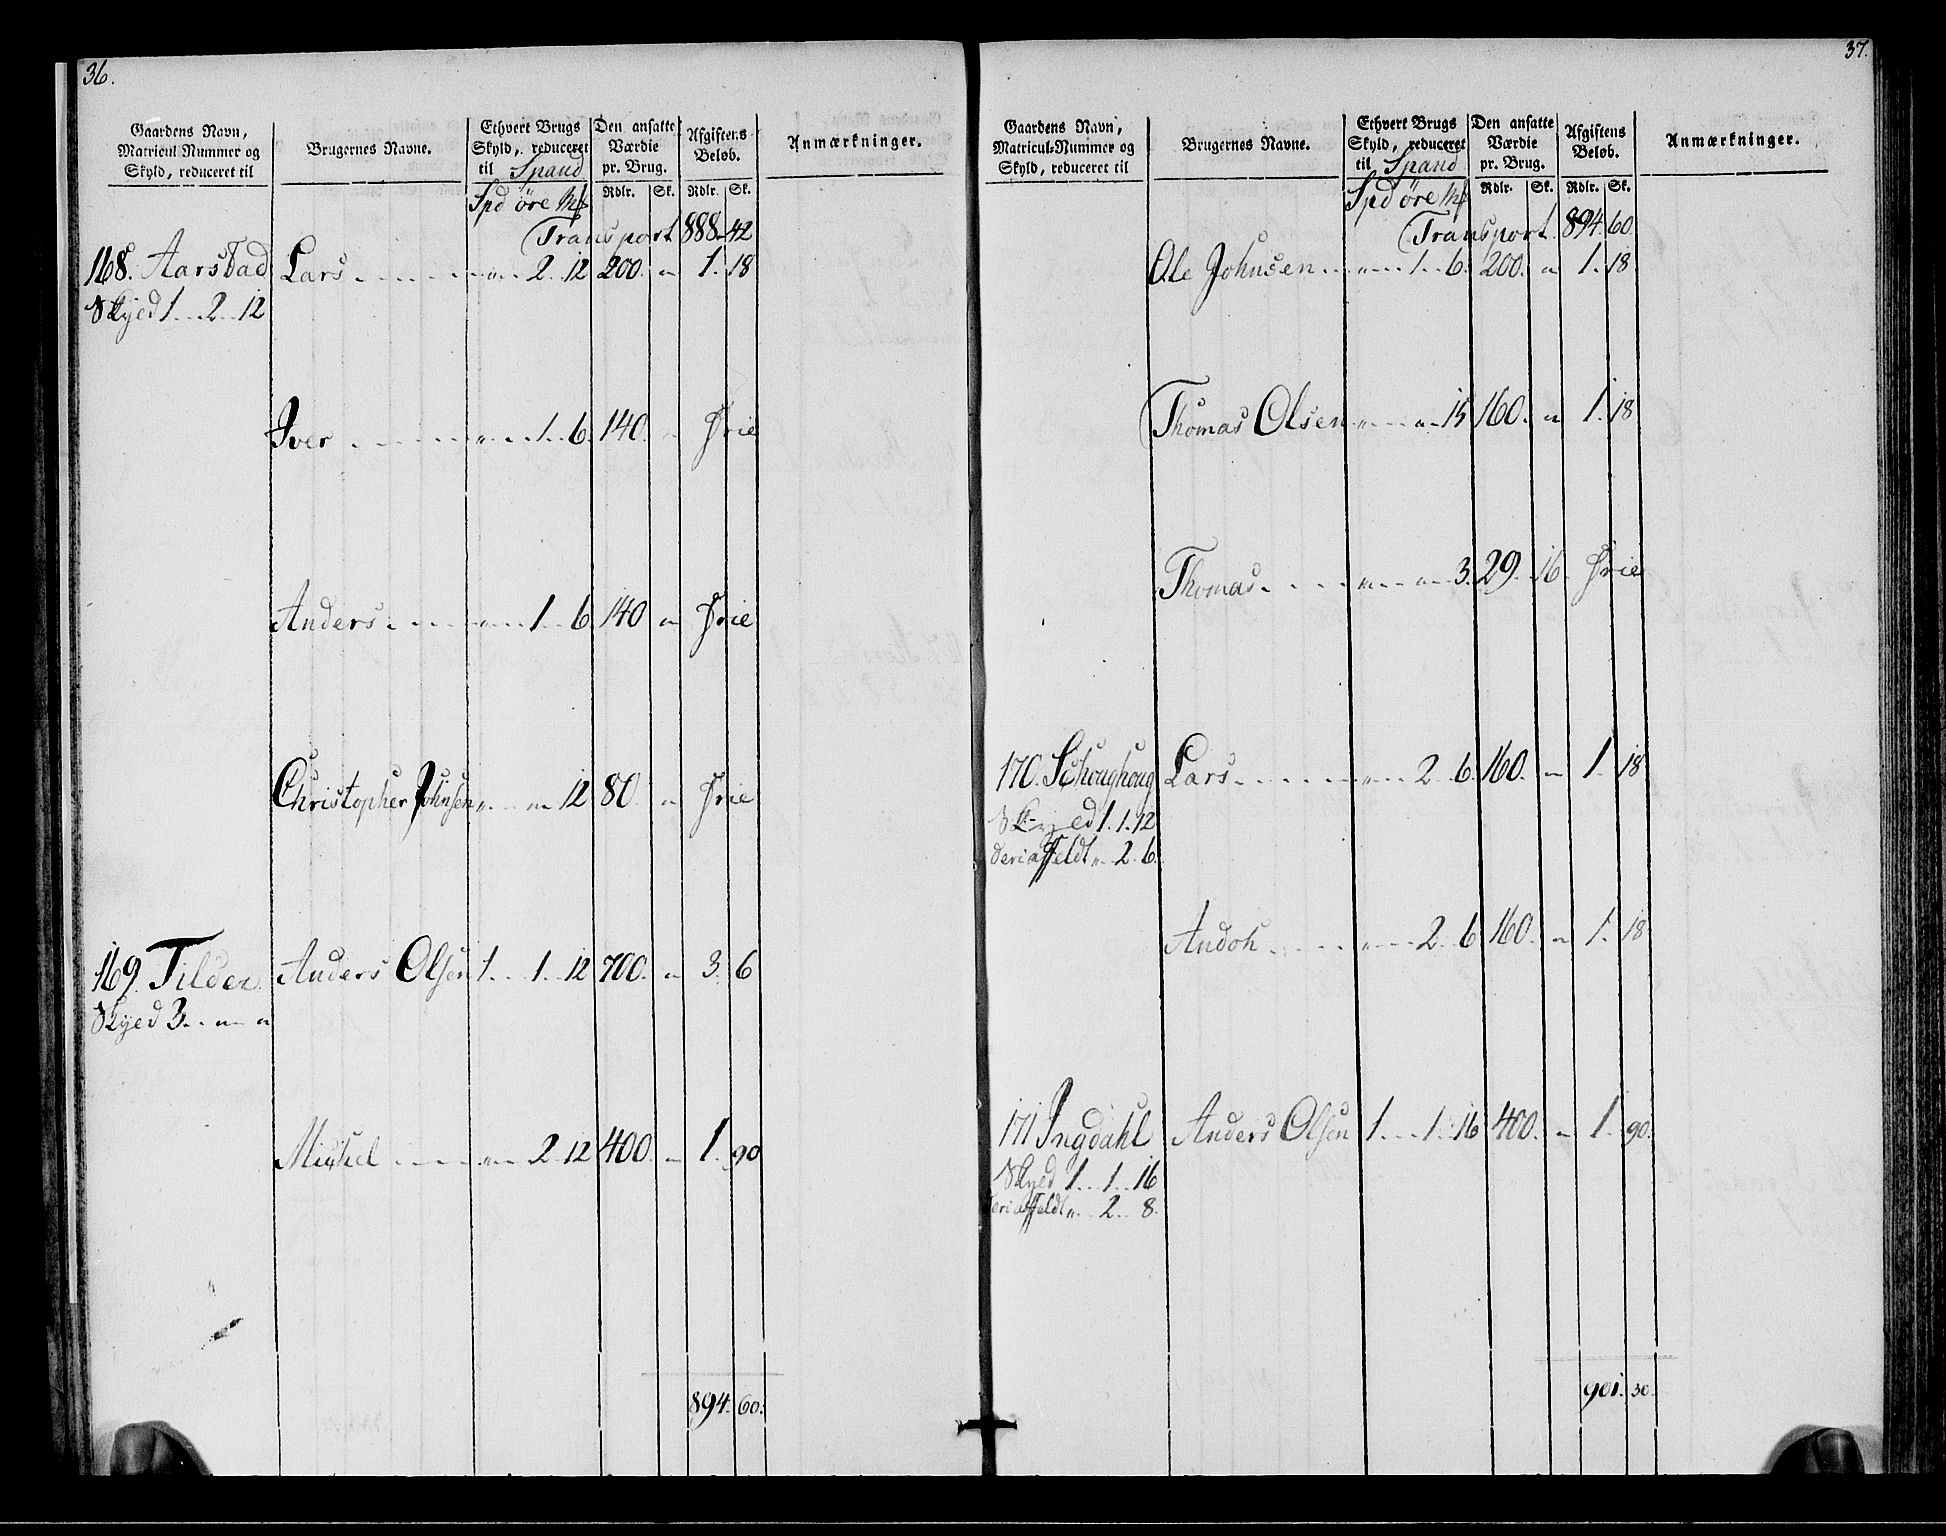 36.
Gaardens Navn, Matricul-Nummer og Skyld, reduceret til
Brugernes Navne.
Ethvert Brugs Skyld, reduceret til Spand
Den ansatte Værdie pr. Brug.
Afgiftens Beløb.
Anmærkninger.
Spd öre Mk
Rdlr. Sk. Rdlr. Sk.
Transport 888 42
168. Aarstad Lars " 2 12 200. " 1. 18
Skyed 1 2 12
Iver " 1 6 140. " Frie
Anders " 1 6 140 " Frie
Christopher Johnsen " " 12 80. " Frie
169. Tilder Anders Olsen 1 1 12 700. " 3. 6
Skyed 3 " "
Michel " 2 12 400. " 1. 90
894. 60.
37.
Gaardens Navn, Matricul-Nummer og Skyld, reduceret til
Brugernes Navne.
Ethvert Brugs Skyld, reduceret til Spand
Den ansatte Værdie pr. Brug.
Afgiftens Beløb.
Anmærkninger.
Spd öre Mk
Rdlr. Sk. Rdlr. Sk.
Transport 894. 60.
Ole Johnsen " 1 6. 200. " 1. 18
Thomas Olsen " " 15 160. " 1. 18
Thomas " " 3. 29. 16. Frie
170. Schoughoug Lars " 2 6. 160. " 1. 18
Skyed 1. 1. 12
deriaffeldt " 2 6.
Andoh " 2. 6 160. " 1. 18
171 Ingdahl Anders Olsen 1 1. 16 400. " 1. 90.
Skyed 1 1 16
deriaffeldt " 2 8.
901. 30.